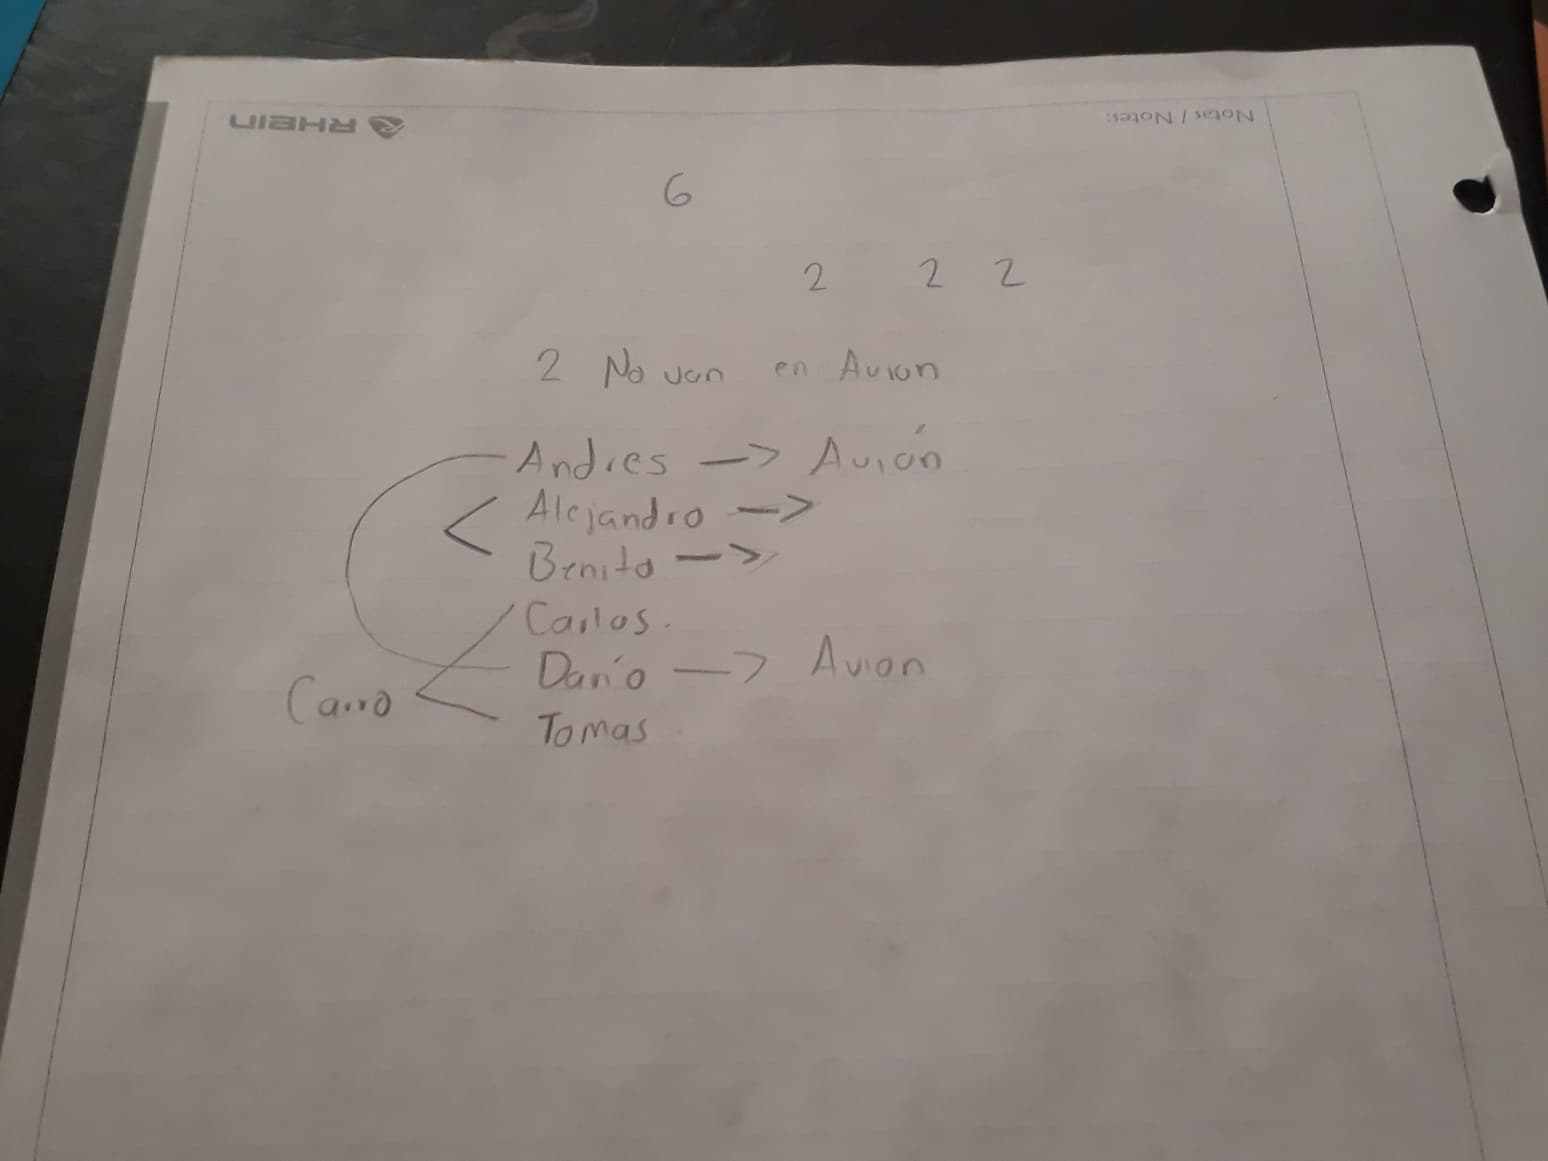 RHEIN
Notas / Notes:
6
2 2 2
2 No van en Avion
Andres —> Avión
Alejandro —>
Benito —>
Carlos.
Darío —> Avion
Carro
Tomas